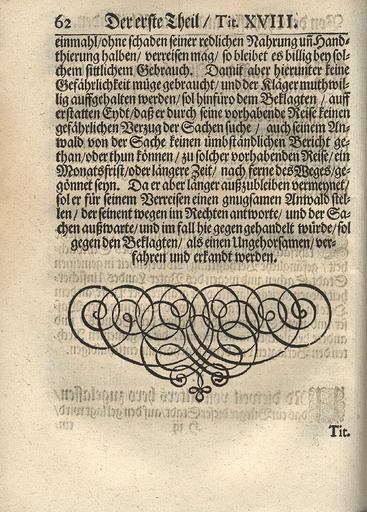 62 Der erste Theil / Tit. XVIII.
einmahl / ohne schaden seiner redlichen Nahrung uñ Hand-
thierung halben / verreisen mag / so bleibet es billig bey sol-
chem sittlichem Gebrauch. Damit aber hierunter keine
Gefährlichkeit müge gebraucht / und der Kläger muthwil-
lig auffgehalten werden / sol hinfüro dem Beklagten / auff
erstatten Eydt / daß er durch seine vorhabende Reise keinen
gefährlichen Verzug der Sachen suche / auch seinem An-
wald von der Sache keinen ümbständlichen Bericht ge-
than / oder thun können / zu solcher vorhabenden Reise / ein
Monatsfrist / oder längere Zeit / nach ferne des Weges / ge-
gönnet seyn. Da er aber länger außzubleiben vermeynet /
sol er für seinem Verreisen einen gnugsamen Anwald stel-
len / der seinent wegen im Rechten antworte / und der Sa-
chen außwarte / und im fall hie gegen gehandelt würde / sol
gegen den Beklagten / als einen Ungehorsamen / ver-
fahren und erkandt werden.
Tit.